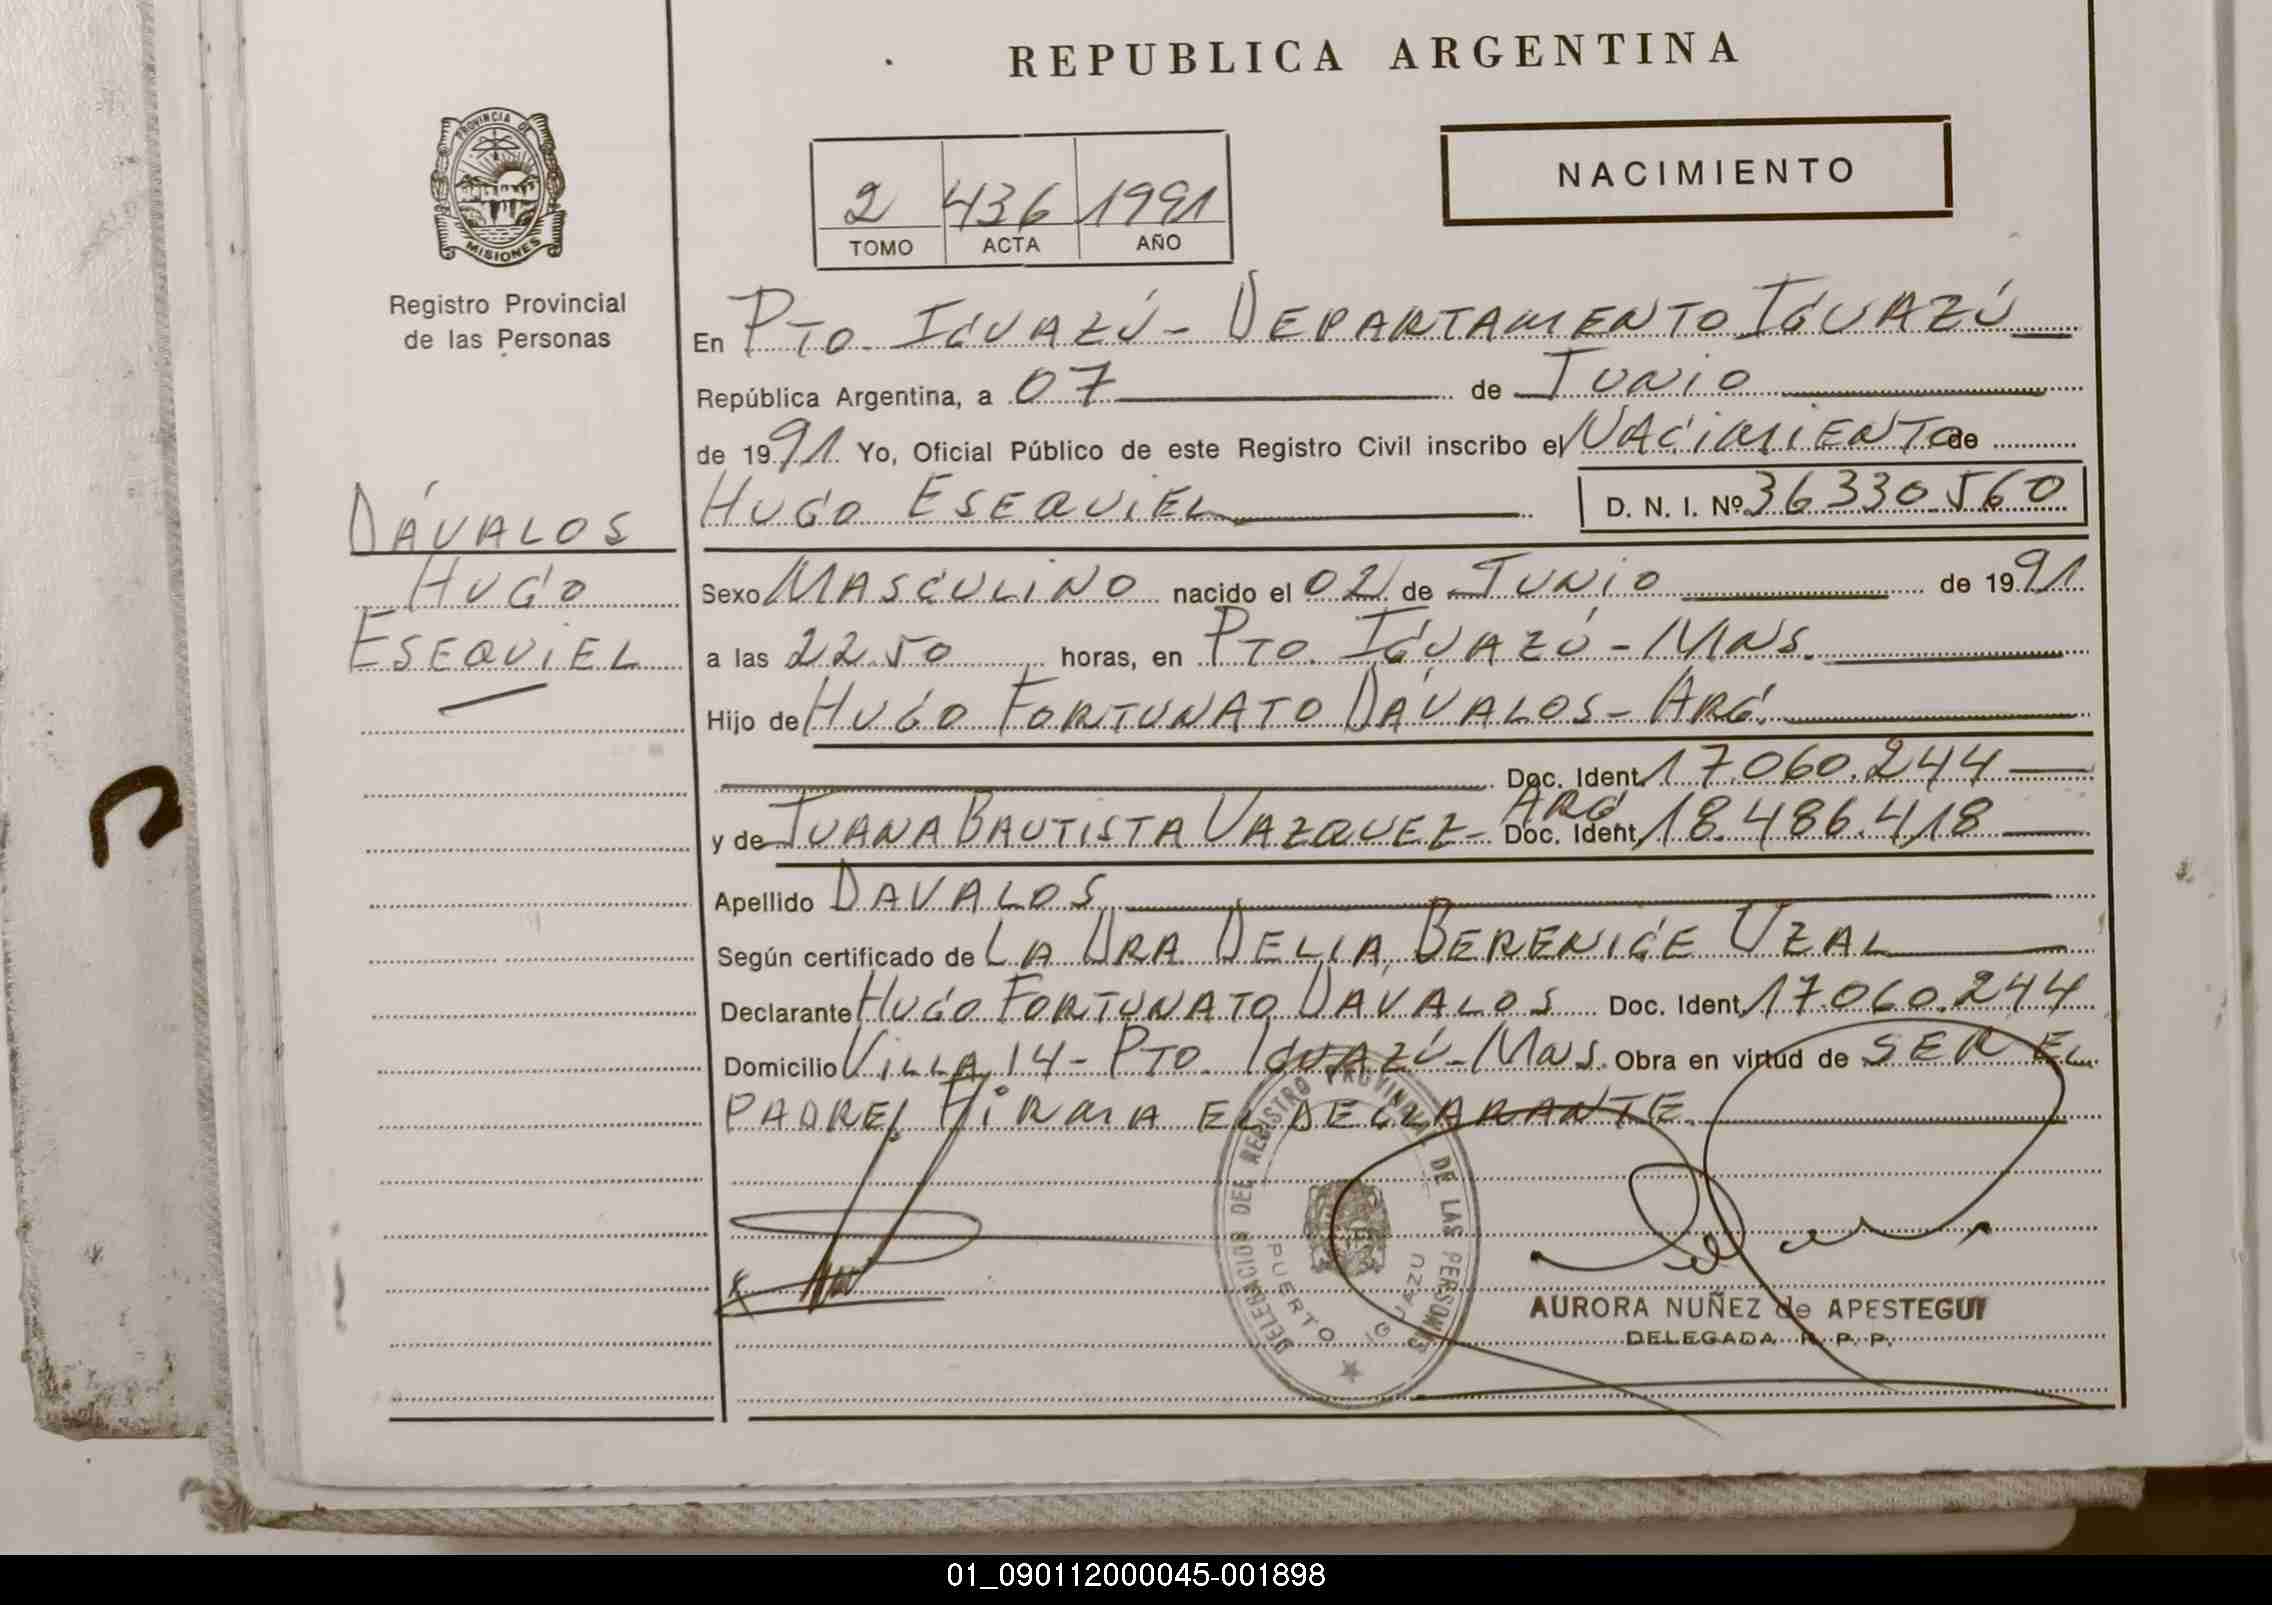 REPUBLICA ARGENTINA
NACIMIENTO
2 436 1991
TOMO ACTA AÑO
PROVINCIA DE
MISIONES
Registro Provincial
de las Personas
DÁVALOS
HUGO
ESEQUIEL
En PTO. IGUAZÚ - DEPARTAMENTO IGUAZÚ
República Argentina, a 07 de JUNIO
de 1991. Yo, Oficial Público de este Registro Civil inscribo el NACIMIENTO de
HUGO ESEQUIEL D. N. I. Nº 36.330.560
Sexo MASCULINO nacido el 02 de JUNIO de 1991.
a las 22.50 horas, en PTO. IGUAZÚ - MNS.
Hijo de HUGO FORTUNATO DÁVALOS - ARG.
Doc. Ident. 17.060.244
y de JUANA BAUTISTA VAZQUEZ - ARG Doc. Ident. 18.486.418
Apellido DAVALOS
Según certificado de LA DRA DELIA BERENICE UZAL
Declarante HUGO FORTUNATO DAVALOS Doc. Ident. 17.060.244
Domicilio VILLA 14 - PTO. IGUAZÚ - MNS. Obra en virtud de SER EL
PADRE, FIRMA EL DECLARANTE
DELEGACION DEL REGISTRO PROVINCIAL DE LAS PERSONAS
PUERTO IGUAZU
AURORA NUÑEZ de APESTEGUI
DELEGADA R. P. P.
01_090112000045-001898